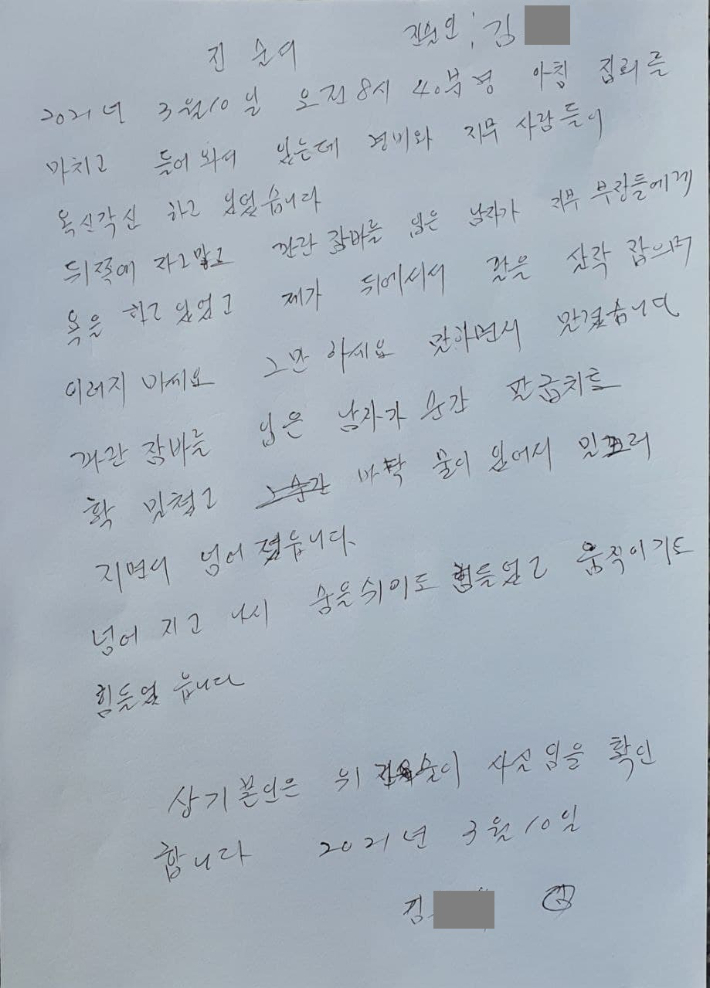 진 술 서 진술인 : 김
2021년 3월10일 오전8시 40분경 아침 집회를
마치고 들어와서 있는데 경비와 지부 사람들이
옥신각신 하고 있었습니다
뒤쪽에 자그맣고 까만 잠바를 입은 남자가 지부 부장들에게
욕을 하고 있었고 제가 뒤에서서 팔을 살짝 잡으며
이러지 마세요 그만 하세요 말하면서 말렸습니다
까만 잠바를 입은 남자가 순간 팔급치로
확 밀쳤고 바닥 물이 있어서 밀끄러
지면서 넘어 졌습니다.
넘어 지고 나서 숨을쉬이도 힘들었고 움직이기도
힘들었 습니다
상기 본인은 위 진술이 사실 임을 확인
합니다 2021년 3월 10일
김